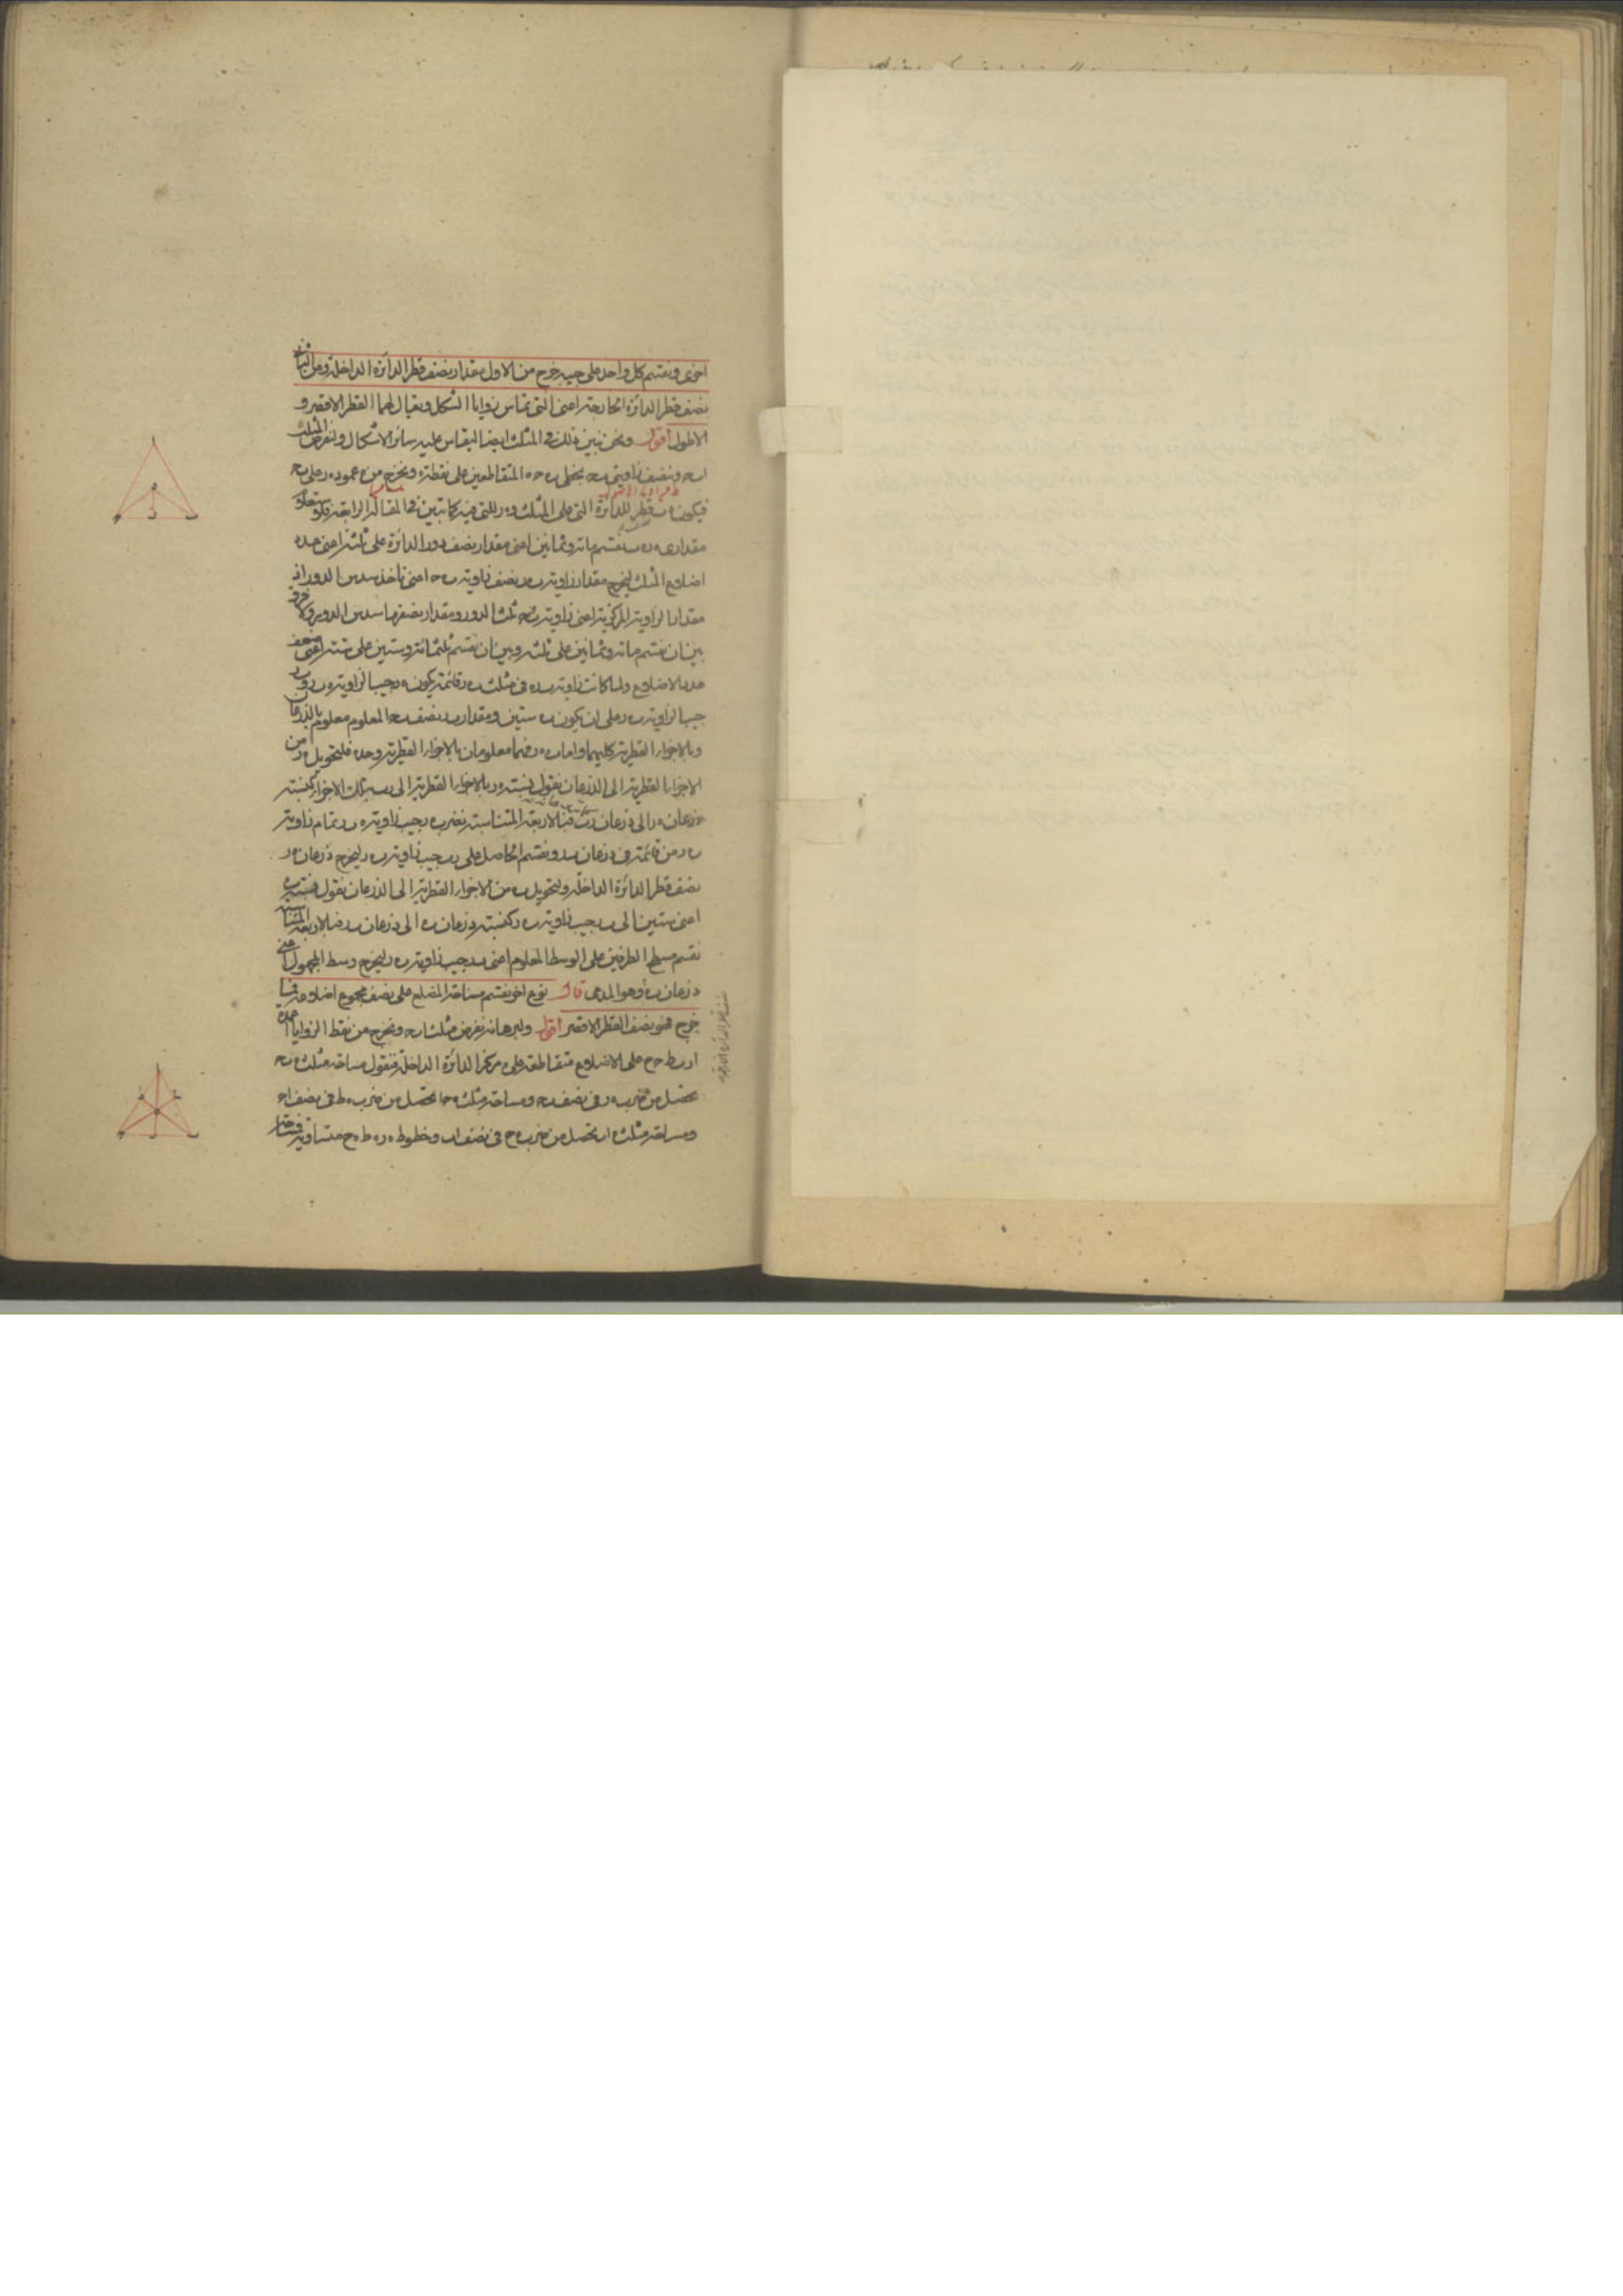 اخرى ونقسم كل واحد على جيبه خرج من الاول مقدار نصف قطر الدائرة الداخلة ومن الثانى
نصف قطر الدائرة الخارجة اعنى التى تماس زوايا الشكل ويقال لهما القطر الاقصر و
الاطول اقول ونحن نبين ذلك فى المثلث ايضا ليقاس عليه سائر الاشكال ولنفرض المثلث
ا ب ح وننصف زاويتى ب ح بخطى ب ه ح ه المتقاطعين على نقطة ه ونخرج من ه عمود ه د على ب ح
فيكون ه ب قطر للدائرة التى على المثلث و ه د للتى فيه كما تبين فى المقالة الرابعة
مقدارى ه د ه ب نقسم مائة وثمانين اعنى مقدار نصف دور الدائرة على ثلثة اعنى عدة
اضلاع المثلث ليخرج مقدار زاوية ب ه د نصف زاوية ب ه ح اعنى ناخذ سدس الدور اذ
مقدار الزاوية المركزية اعنى زاوية ب ه ح ثلث الدور ومقدار نصفها سدس الدور ولا فرق
بين ان نقسم مائة وثمانين على ثلثة وبين ان نقسم ثلثمائة وستين على ستة اعنى ضعف
عدد الاضلاع ولما كانت زاوية ب د ه فى مثلث ب ه د قائمة يكون ه د جيبا لزاوية ه ب د و ب د
جيبا لزاوية ب ه د على ان يكون ب ه ستين ومقدار ب د نصف ب ح المعلوم معلوم بالذرعان
وبالاجزاء القطرية كليهما واما ب ه ه د فهما معلومان بالاجزاء القطرية وحده فلتحويل ه د من
الاجزاء القطرية الى الذرعان نقول نسبة ه د بالاجزاء القطرية الى د ب بتلك الاجزاء كنسبة
ذرعان ه د الى ذرعان د ب فبالاربعة المتناسبة نضرب ه د جيب زاوية ه ب د تمام زاوية
ب ه د من قائمة فى ذرعان ب د ونقسم الحاصل على د ب جيب زاوية ب ه د ليخرج ذرعان ه د
نصف قطر الدائرة الداخلة ولتحويل ب ه من الاجزاء القطرية الى الذرعان نقول نسبة ب ه
اعنى ستين الى ب د جيب زاوية ب ه د كنسبة ذرعان ب ه الى ذرعان ب د فبالاربعة المتناسبة
نقسم مسطح الطرفين على الوسط المعلوم اعنى ب د جيب زاوية ب ه د ليخرج وسط المجهول اعنى
ذرعان ب ه وهو المدعى قال نوع اخر نقسم مساحة المضلع على نصف مجموع اضلاعه فما
خرج فهو نصف القطر الاقصر اقول ولبرهانه نفرض مثلث ا ب ح ونخرج من نقط الزوايا اعمدة
ا د ب ط ح ح على الاضلاع متقاطعة على ه مركز الدائرة الداخلة فنقول مساحة مثلث ه ب ح
تحصل من ضرب ه د فى نصف ب ح ومساحة مثلث ه ح ا تحصل من ضرب ه ط فى نصف ا ح
ومساحة مثلث ه ا ب تحصل من ضرب ه ح فى نصف ا ب وخطوط ه د ه ط ه ح متساوية